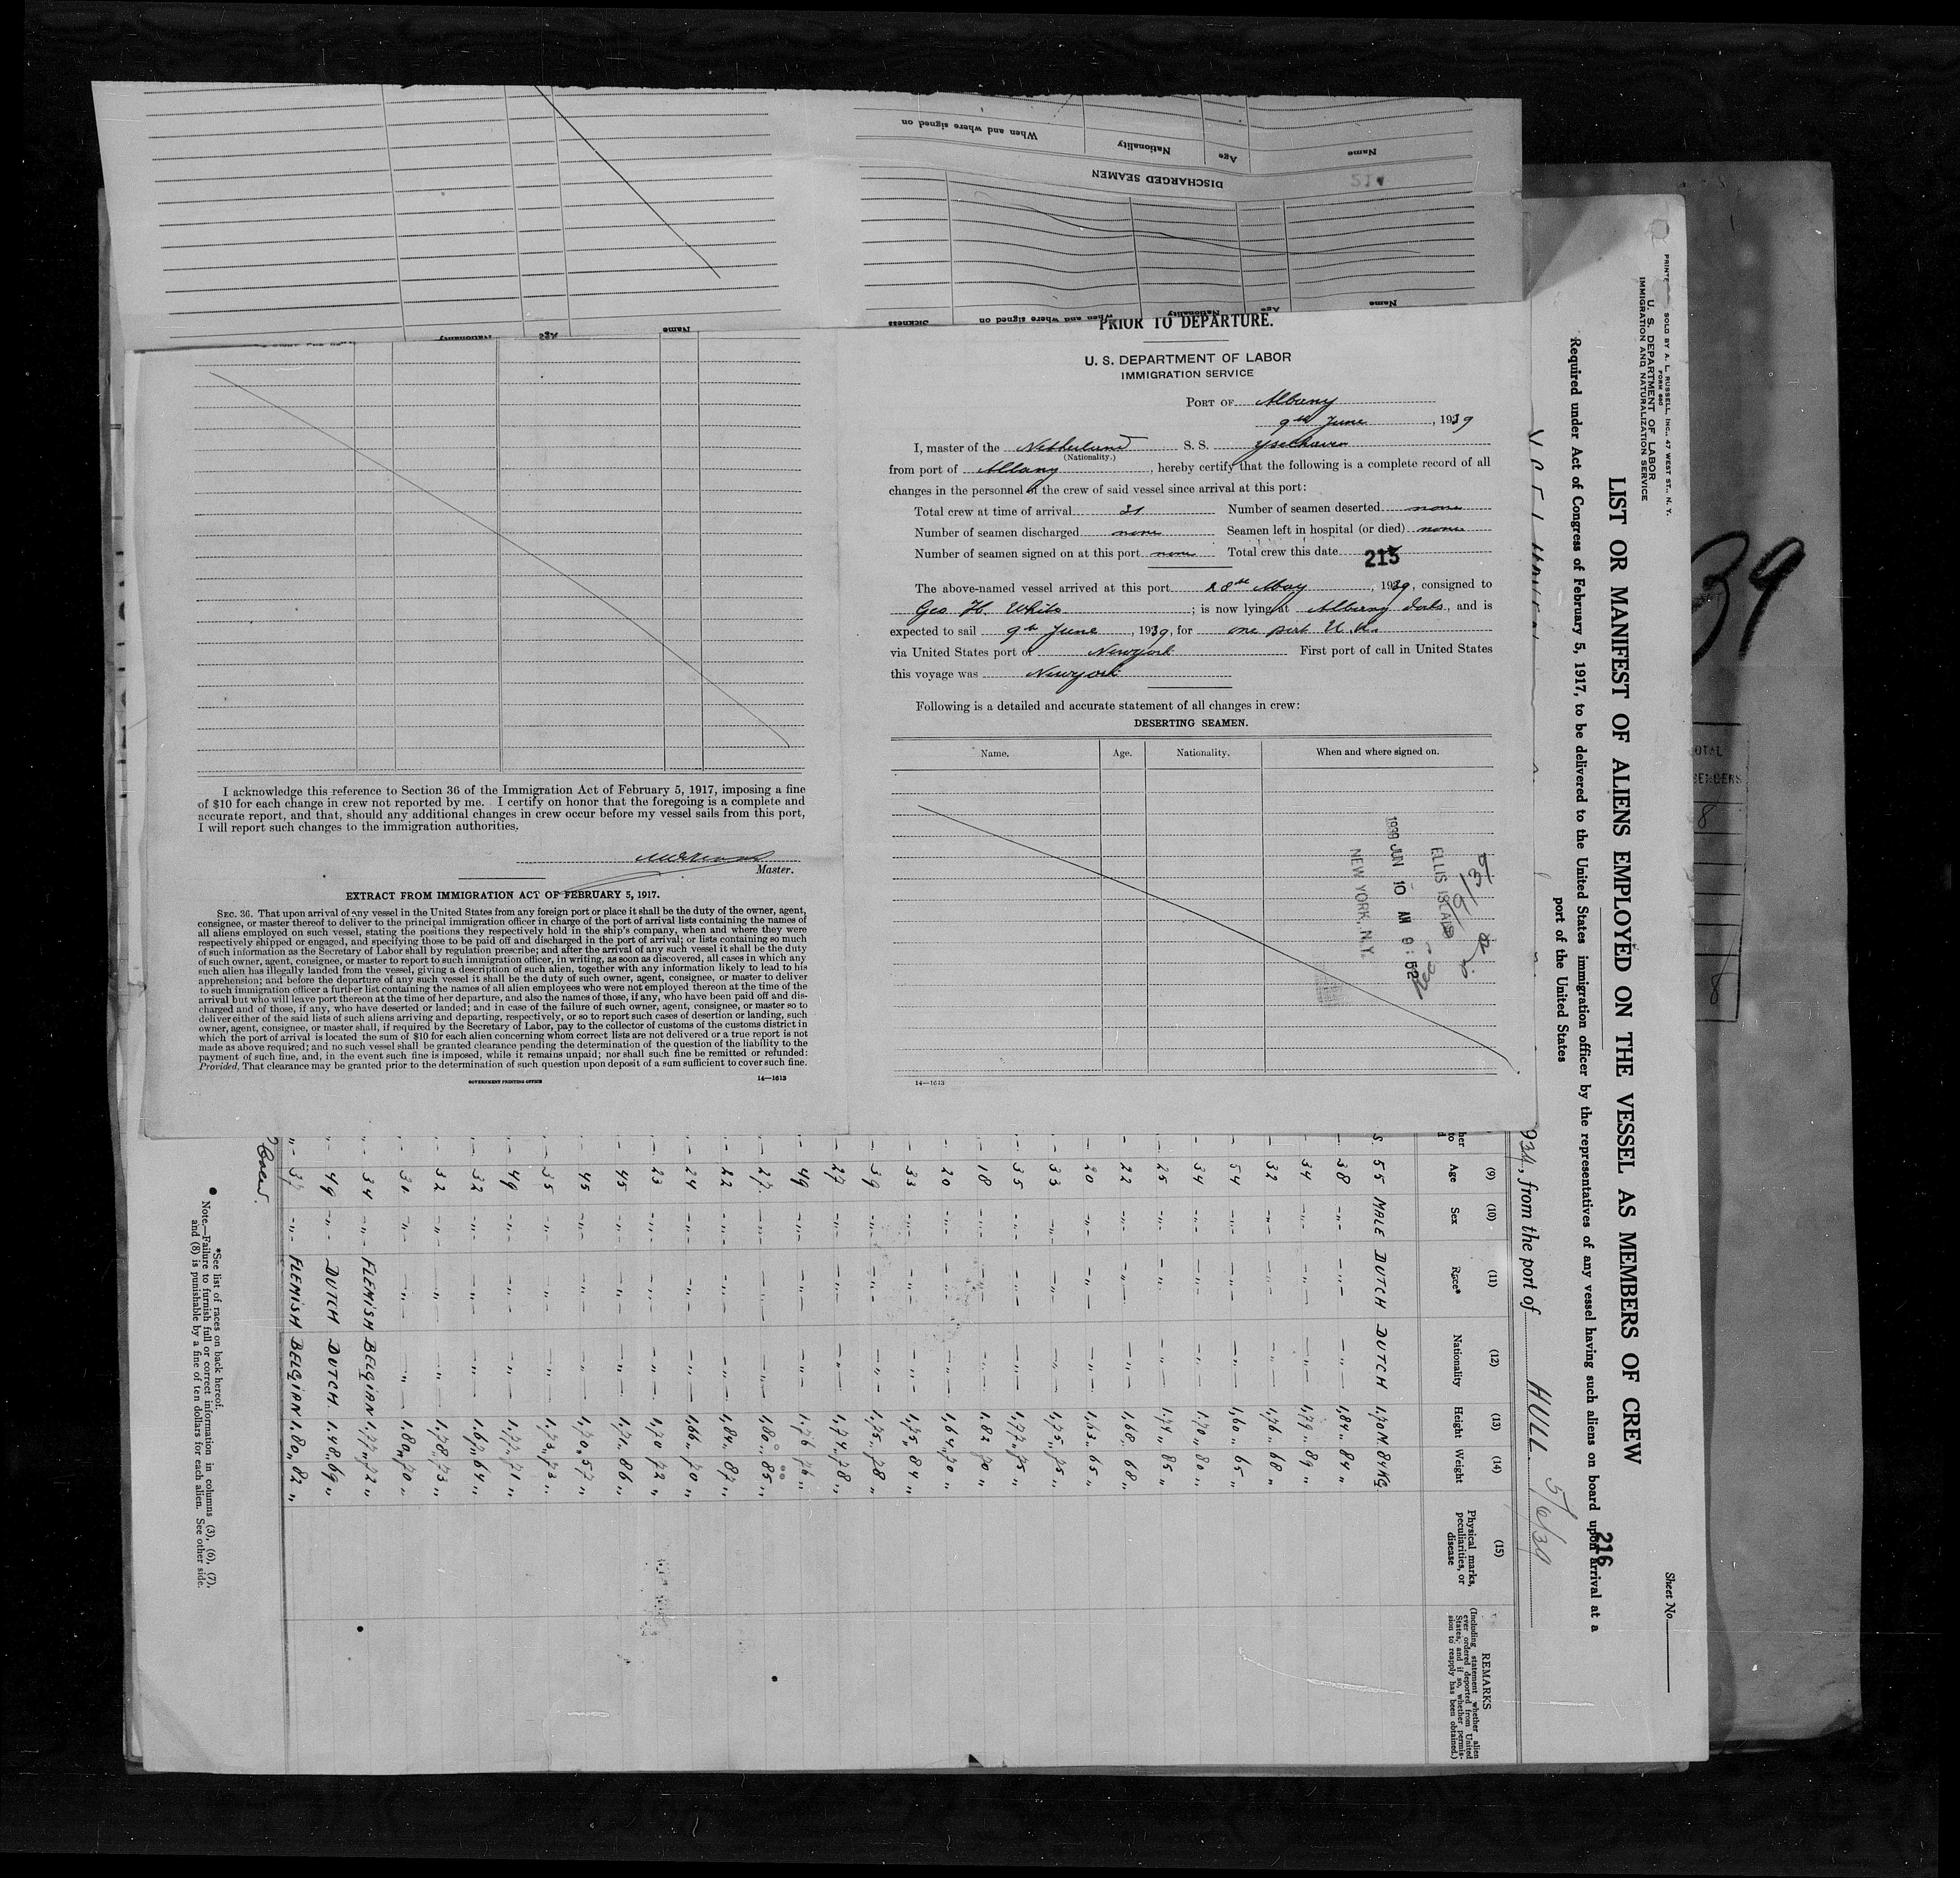 When and where signed on
Nationality
Age
Name
DISCHARGED SEAMEN
Sickness
When and where signed on
Nationality
Age
Name
Nationality
Age
Name
PRIOR TO DEPARTURE.
U. S. DEPARTMENT OF LABOR
IMMIGRATION SERVICE
PORT OF Albany
9th June, 1939
I, master of the Netherland S. S. Yselhaven
(Nationality.)
from port of Albany, hereby certify that the following is a complete record of all
changes in the personnel of the crew of said vessel since arrival at this port:
Total crew at time of arrival 31 Number of seamen deserted none
Number of seamen discharged none Seamen left in hospital (or died) none
Number of seamen signed on at this port none Total crew this date
215
The above-named vessel arrived at this port 28th May, 1939, consigned to
Geo H. White; is now lying at Albany, and is
expected to sail 9th June, 1939, for one port U.K.
via United States port of Newyork First port of call in United States
this voyage was Newyork
Following is a detailed and accurate statement of all changes in crew:
DESERTING SEAMEN.
Name. Age. Nationality. When and where signed on.
ELLIS ISLAND
1939 JUN 10 AM 9:52
NEW YORK, N.Y.
14—1613
I acknowledge this reference to Section 36 of the Immigration Act of February 5, 1917, imposing a fine
of $10 for each change in crew not reported by me. I certify on honor that the foregoing is a complete and
accurate report, and that, should any additional changes in crew occur before my vessel sails from this port,
I will report such changes to the immigration authorities.
Master.
EXTRACT FROM IMMIGRATION ACT OF FEBRUARY 5, 1917.
SEC. 36. That upon arrival of any vessel in the United States from any foreign port or place it shall be the duty of the owner, agent,
consignee, or master thereof to deliver to the principal immigration officer in charge of the port of arrival lists containing the names of
all aliens employed on such vessel, stating the positions they respectively hold in the ship's company, when and where they were
respectively shipped or engaged, and specifying those to be paid off and discharged in the port of arrival; or lists containing so much
of such information as the Secretary of Labor shall by regulation prescribe; and after the arrival of any such vessel it shall be the duty
of such owner, agent, consignee, or master to report to such immigration officer, in writing, as soon as discovered, all cases in which any
such alien has illegally landed from the vessel, giving a description of such alien, together with any information likely to lead to his
apprehension; and before the departure of any such vessel it shall be the duty of such owner, agent, consignee, or master to deliver
to such immigration officer a further list containing the names of all alien employees who were not employed thereon at the time of the
arrival but who will leave port thereon at the time of her departure, and also the names of those, if any, who have been paid off and dis-
charged and of those, if any, who have deserted or landed; and in case of the failure of such owner, agent, consignee, or master so to
deliver either of the said lists of such aliens arriving and departing, respectively, or so to report such cases of desertion or landing, such
owner, agent, consignee, or master shall, if required by the Secretary of Labor, pay to the collector of customs of the customs district in
which the port of arrival is located the sum of $10 for each alien concerning whom correct lists are not delivered or a true report is not
made as above required; and no such vessel shall be granted clearance pending the determination of the question of the liability to the
payment of such fine, and, in the event such fine is imposed, while it remains unpaid; nor shall such fine be remitted or refunded:
Provided, That clearance may be granted prior to the determination of such question upon deposit of a sum sufficient to cover such fine.
GOVERNMENT PRINTING OFFICE 14—1613
SOLD BY A. L. RUSSELL, INC., 47 WEST ST., N. Y.
FORM 680
U. S. DEPARTMENT OF LABOR
IMMIGRATION AND NATURALIZATION SERVICE
Sheet No.
LIST OR MANIFEST OF ALIENS EMPLOYED ON THE VESSEL AS MEMBERS OF CREW
216
Required under Act of Congress of February 5, 1917, to be delivered to the United States immigration officer by the representatives of any vessel having such aliens on board upon arrival at a
port of the United States
, from the port of HULL. 5/6/39
(9) (10) (11) (12) (13) (14) (15)
Age Sex Race* Nationality Height Weight Physical marks, peculiarities, or disease
REMARKS
(Including statement whether alien
ever ordered deported from United
States, and if so, whether permis-
sion to reapply has been obtained.)
55 MALE DUTCH DUTCH 1,70M. 84KG
38 -"- -"- -"- 1,84 " 84 "
34 -"- -"- -"- 1,79 " 89 "
32 -"- -"- -"- 1,76 " 68 "
54 -"- -"- -"- 1,60 " 65 "
34 -"- -"- -"- 1.70 " 80 "
25 -"- -"- -"- 1.74 " 85 "
22 -"- -"- -"- 1,68 " 68 "
20 -"- -"- -"- 1,63 " 65 "
33 -"- -"- -"- 1,75 " 75 "
35 -"- -"- -"- 1,77 " 75 "
18 -"- -"- -"- 1.82 70 "
20 -"- -"- -"- 1,64 " 70 "
33 -"- -"- -"- 1,75 " 84 "
39 -"- -"- -"- 1,75 " 78 "
27 -"- -"- -"- 1,74 " 78 "
49 -"- -"- -"- 1,76 76 "
27 -"- -"- -"- 1,80 " 85 "
22 -"- -"- -"- 1,84 " 87 "
24 -"- -"- -"- 1,66 " 70 "
23 -"- -"- -"- 1,70 72 "
45 -"- -"- -"- 1,71 " 86 "
45 -"- -"- -"- 1,70 " 57 "
35 -"- -"- -"- 1,73 " 73 "
49 -"- -"- -"- 1,77 " 71 "
32 -"- -"- -"- 1,67 " 64 "
32 -"- -"- -"- 1,78 " 73 "
30 -"- -"- -"- 1.80 " 70 "
34 -"- FLEMISH BELGIAN 1,77 " 72 "
49 -"- DUTCH DUTCH 1.48 " 69 "
37 -"- FLEMISH BELGIAN 1.80 " 82 "
*See list of races on back hereof.
Note.—Failure to furnish full or correct information in columns (3), (6), (7),
and (8) is punishable by a fine of ten dollars for each alien. See other side.
39
8
8